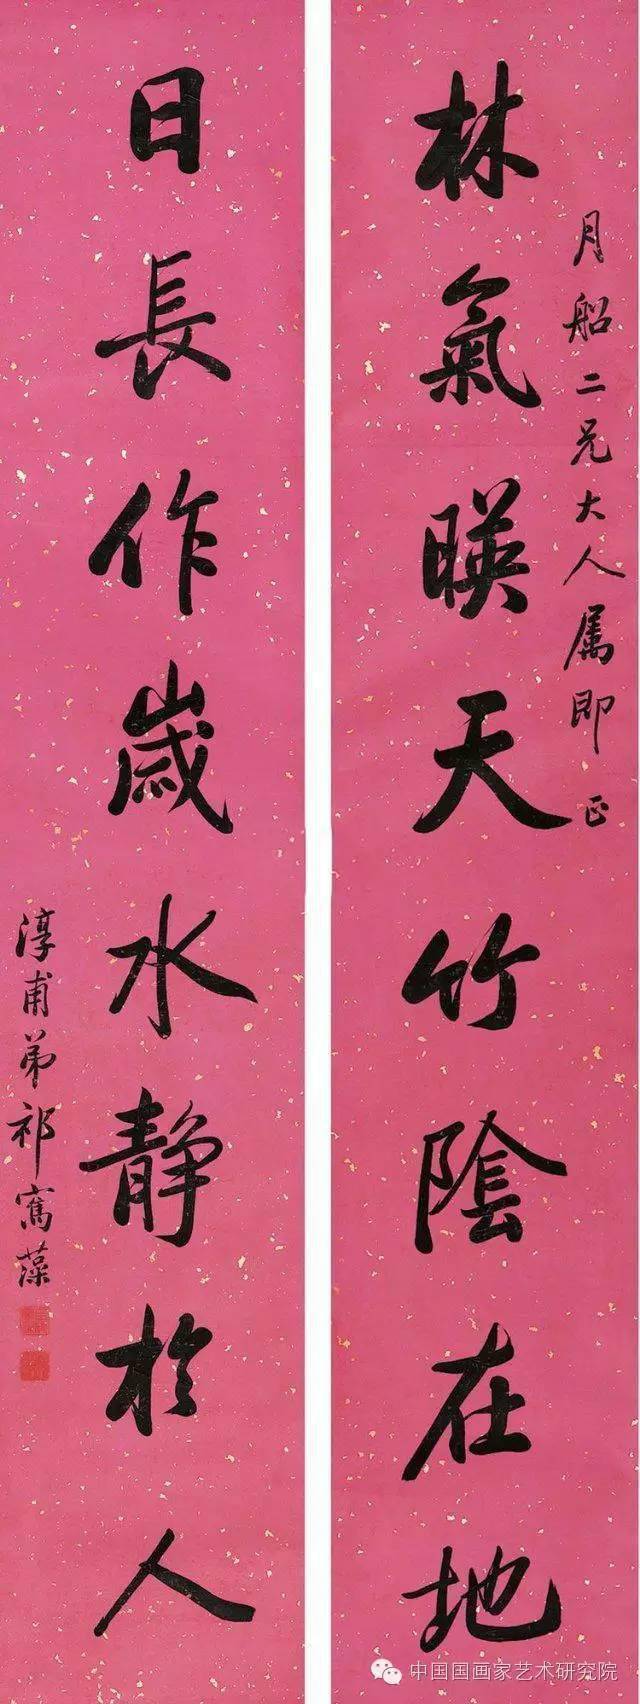 月船二兄大人属即正
林氣暎天竹陰在地
日長作歲水静於人
淳甫弟祁寯藻
中国国画家艺术研究院